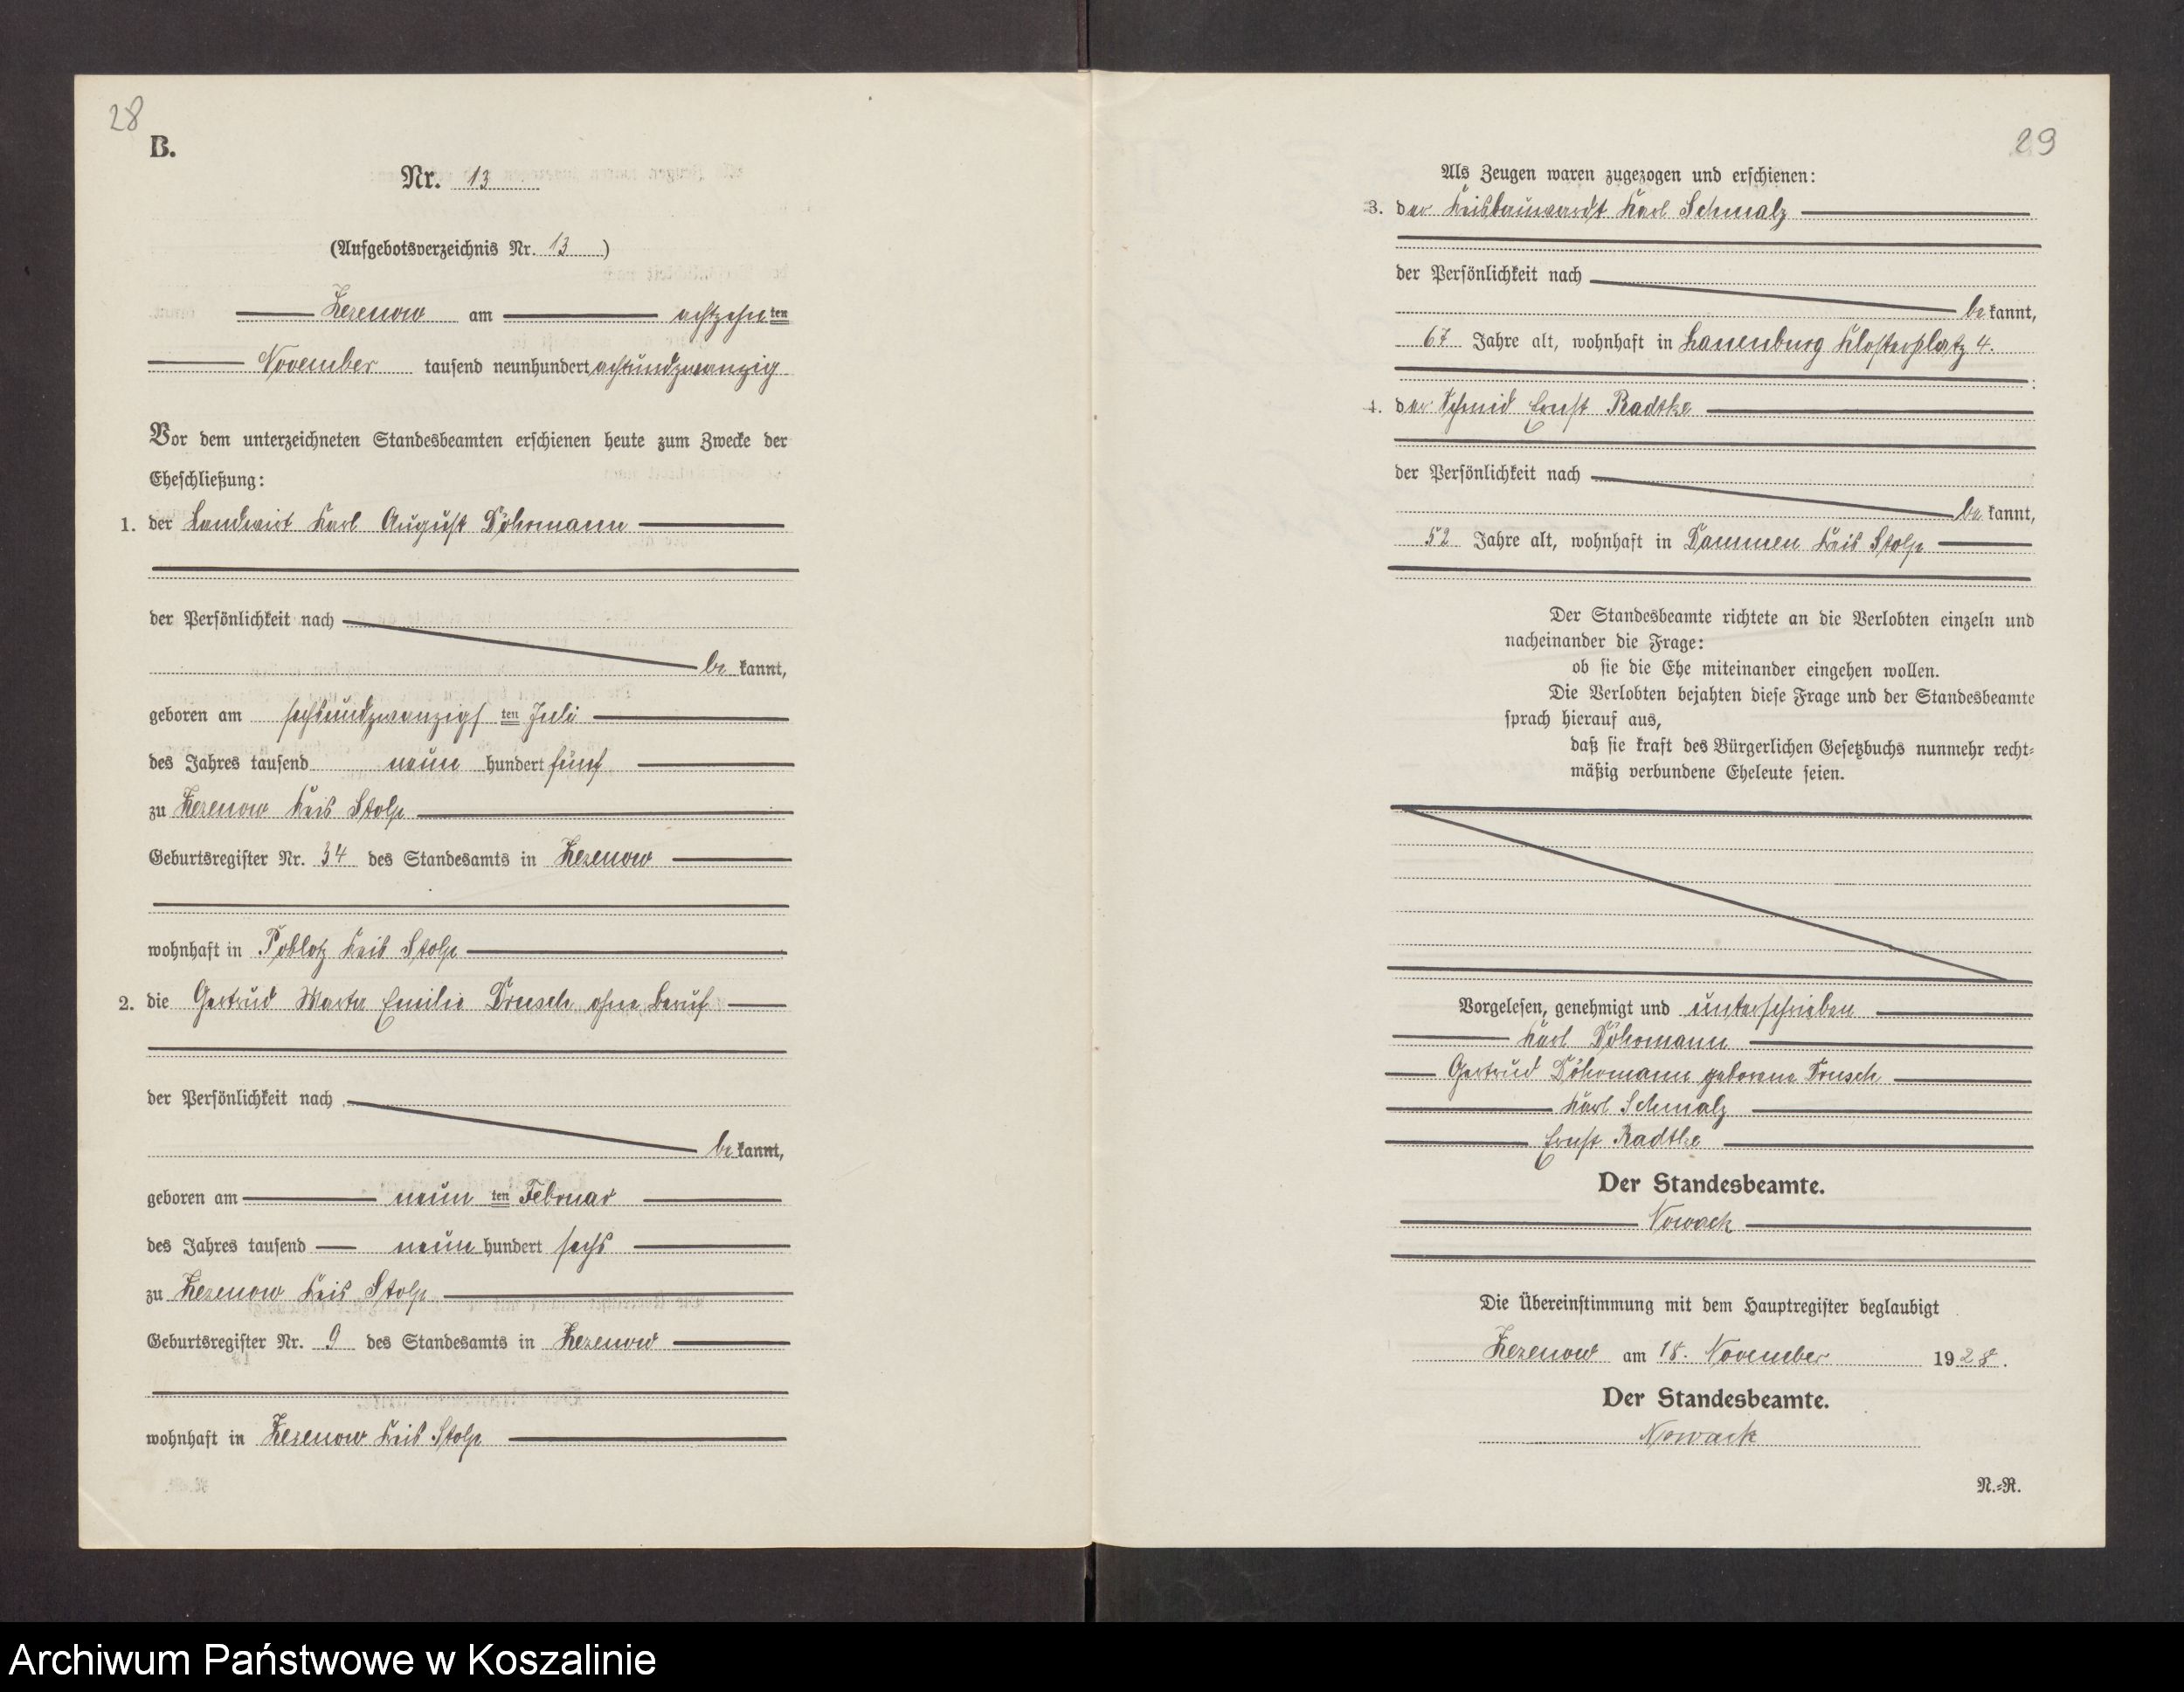 28
B.
Nr. 13
(Aufgebotsverzeichnis Nr. 13)
Zezenow am achtzehnten
November tausend neunhundert achtundzwanzig
Vor dem unterzeichneten Standesbeamten erschienen heute zum Zwecke der
Eheschließung:
1. der Landwirt Karl August Döhrmann
der Persönlichkeit nach
bekannt,
geboren am sechsundzwanzigsten Juli
des Jahres tausend neunhundert fünf
zu Zezenow Kreis Stolp
Geburtsregister Nr. 34 des Standesamts in Zezenow
wohnhaft in Poblotz Kreis Stolp
2. die Gertrud Marta Emilie Drusch ohne Beruf
der Persönlichkeit nach
bekannt,
geboren am neunten Februar
des Jahres tausend neunhundert sechs
zu Zezenow Kreis Stolp
Geburtsregister Nr. 9 des Standesamts in Zezenow
wohnhaft in Zezenow Kreis Stolp
29
Als Zeugen waren zugezogen und erschienen:
3. der Karl Schmalz
der Persönlichkeit nach
bekannt,
67 Jahre alt, wohnhaft in Lauenburg Klosterplatz 4.
4. der Schmied Ernst Radtke
der Persönlichkeit nach
bekannt,
52 Jahre alt, wohnhaft in Dammen Kreis Stolp
Der Standesbeamte richtete an die Verlobten einzeln und
nacheinander die Frage:
ob sie die Ehe miteinander eingehen wollen.
Die Verlobten bejahten diese Frage und der Standesbeamte
sprach hierauf aus,
daß sie kraft des Bürgerlichen Gesetzbuchs nunmehr recht-
mäßig verbundene Eheleute seien.
Vorgelesen, genehmigt und unterschrieben
Karl Döhrmann
Gertrud Döhrmann geborene Drusch
Karl Schmalz
Ernst Radtke
Der Standesbeamte.
Nowack
Die Übereinstimmung mit dem Hauptregister beglaubigt
Zezenow am 18. November 1928.
Der Standesbeamte.
Nowack
N.-R.
Archiwum Państwowe w Koszalinie